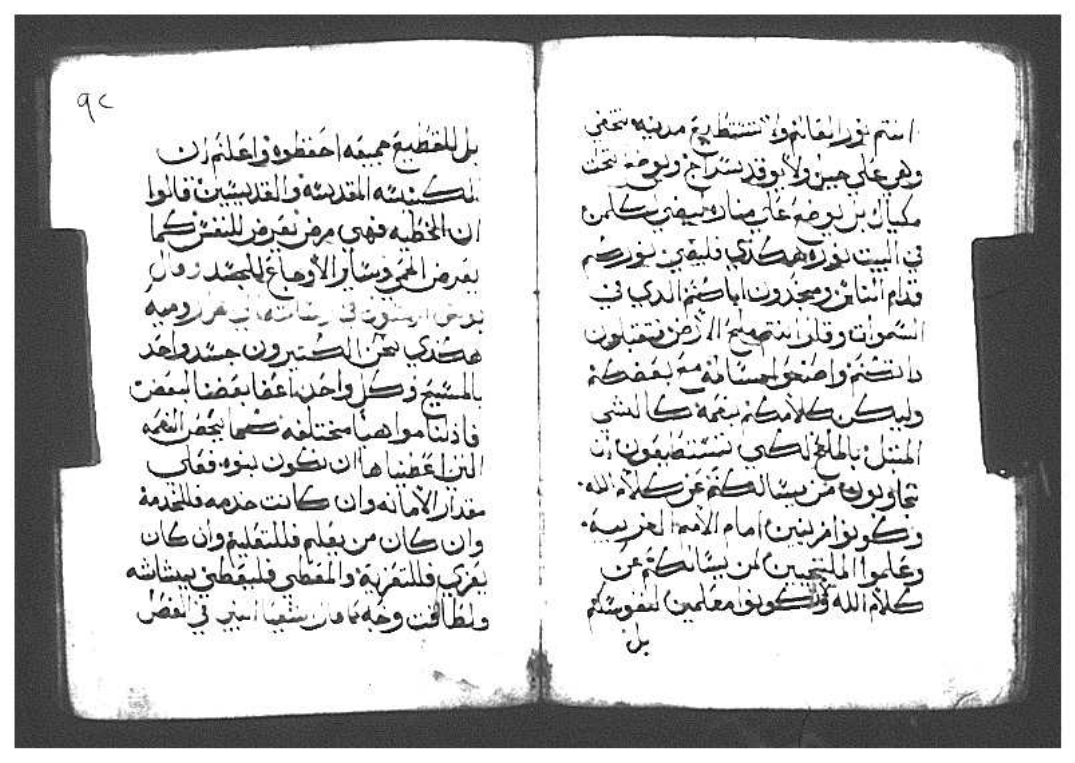 انتم نور العالم ولا تستطيع مدينه تخفي
وهي علي جبل ولا يوقد سراج ويوضع تحت
مكيال بل يوضع علي مناره ليضي لكلمن
في البيت نوره هكذي فليضي نوركم
قدام الناس ويمجدون اباكم الدي في
السموات وقال انتم ملح الارض فتقبلون
داتكم واصنعوا احسانا مع بعضكم
وليكن كلامكم بنعمة كالشي
المتبل بالملح لكي تستطيعون ان
تجاوبون من يسالكم عن كلام الله.
وكونوا مزينين امام الامم الغريبة.
وعلموا الملتجيين لمن يسالكم عن
كلام الله ولا تكونوا معلمين لنفوسكم
بل
٩٢
بل للقطيع جميعه احفظوه واعلم ان
الكنيسه المقدسه والقديسين قالوا
ان الخطيه فهي مرض تعرض للنفس كما
يعرض الحمي وساير الاوجاع للجسد وقال
بولس الرسول في رسالته الي اهل روميه
هكدي نحن الكتيرون جسد واحد
بالمسيح وكل واحد اعضا بعضنا لبعض
فاد لنا مواهبا مختلفه كما يخص النعمه
التي اعطيناها ان تكون نبوه فعلي
مقدار الامانه وان كانت خدمه فللخدمة
وان كان من يعلم فللتعليم وان كان
يعزي فللتعزية والمعطي فليعطي ببشاشه
ولطافت وجه كما قال شعيا النبي في الفصل